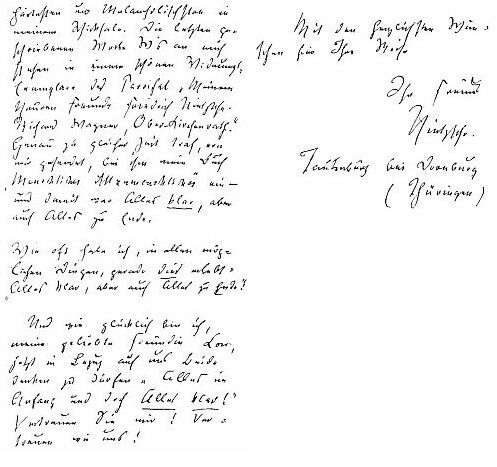 Härtesten und Melancholischsten in
meinem Schicksale. Die letzten ge-
schriebenen Worte W's an mich
stehen in einem schönen Widmungs-
Exemplare des Parsifal „Meinem
theuren Freunde Friedrich Nietzsche.
Richard Wagner, Ober-Kirchenrath."
Genau zu gleicher Zeit traf, von
mir gesendet, bei ihm mein Buch
Menschliches Allzumenschliches ein —
und damit war Alles klar, aber
auch Alles zu Ende.
Wie oft habe ich, in allen mög-
lichen Dingen, gerade dies erlebt:
Alles klar, aber auch Alles zu Ende!
Und wie glücklich bin ich,
meine geliebte Freundin Lou,
jetzt in Bezug auf uns Beide
denken zu dürfen „Alles im
Anfang und doch Alles klar!"
Vertrauen Sie mir! Ver-
trauen wir uns!
Mit den herzlichsten Wün-
schen für Ihre Reise
Ihr Freund
Nietzsche.
Tautenburg bei Dornburg
(Thüringen)